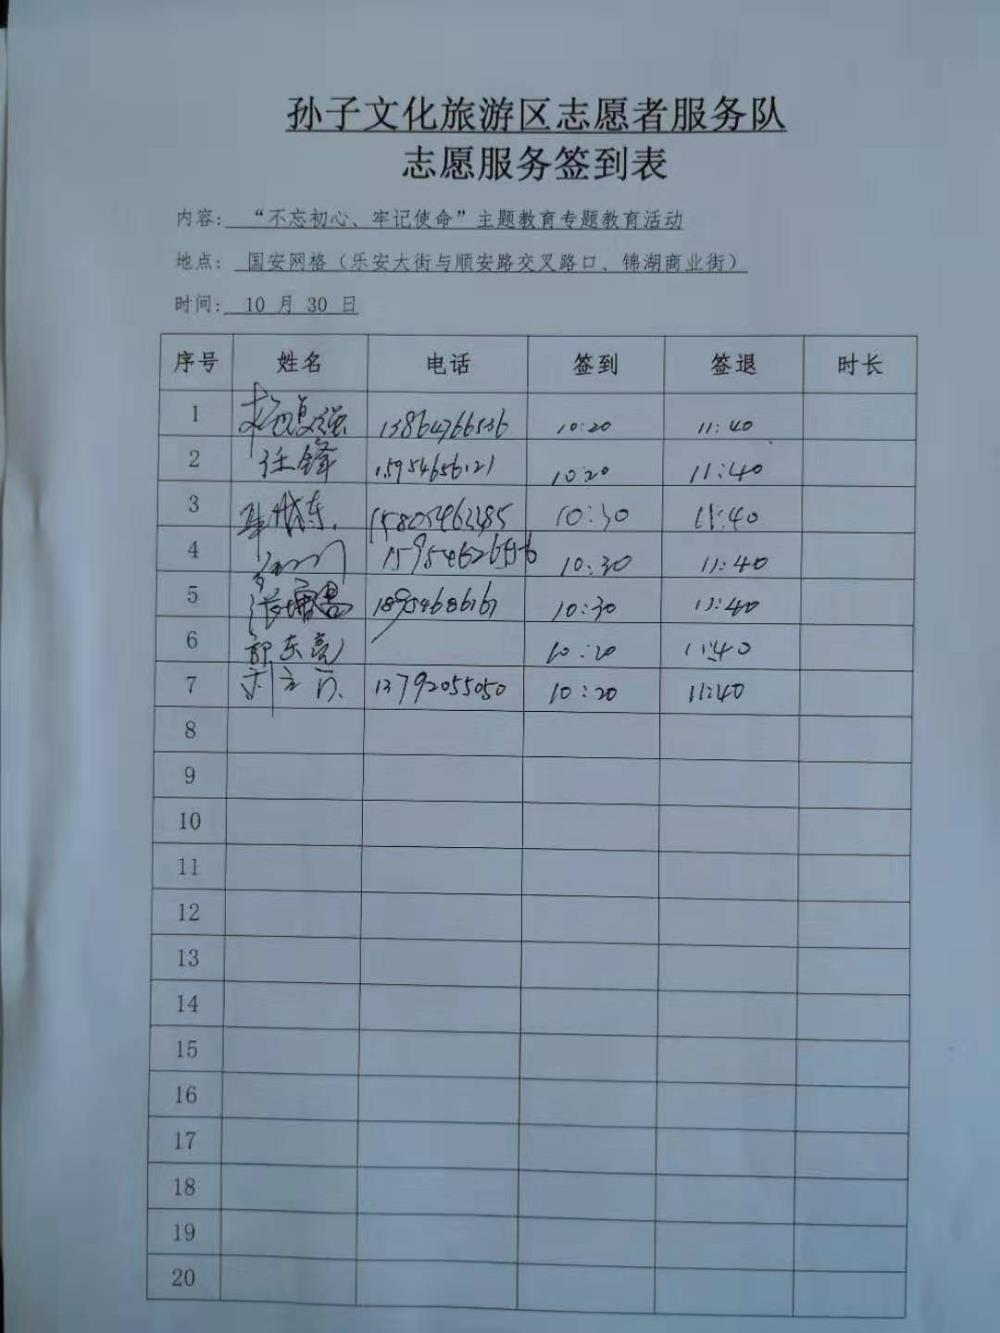 孙子文化旅游区志愿者服务队
志愿服务签到表
内容: “不忘初心、牢记使命”主题教育专题教育活动
地点: 国安网格（乐安大街与顺安路交叉路口、锦湖商业街）
时间: 10 月 30 日
序号 姓名 电话 签到 签退 时长
1 13864766536 10:20 11:40
2 任锋 15954656121 10:20 11:40
3 15805463485 10:30 11:40
4 10:30 11:40
5 18954686161 10:30 11:40
6 郭东亮 10:20 11:40
7 13792055050 10:20 11:40
8
9
10
11
12
13
14
15
16
17
18
19
20